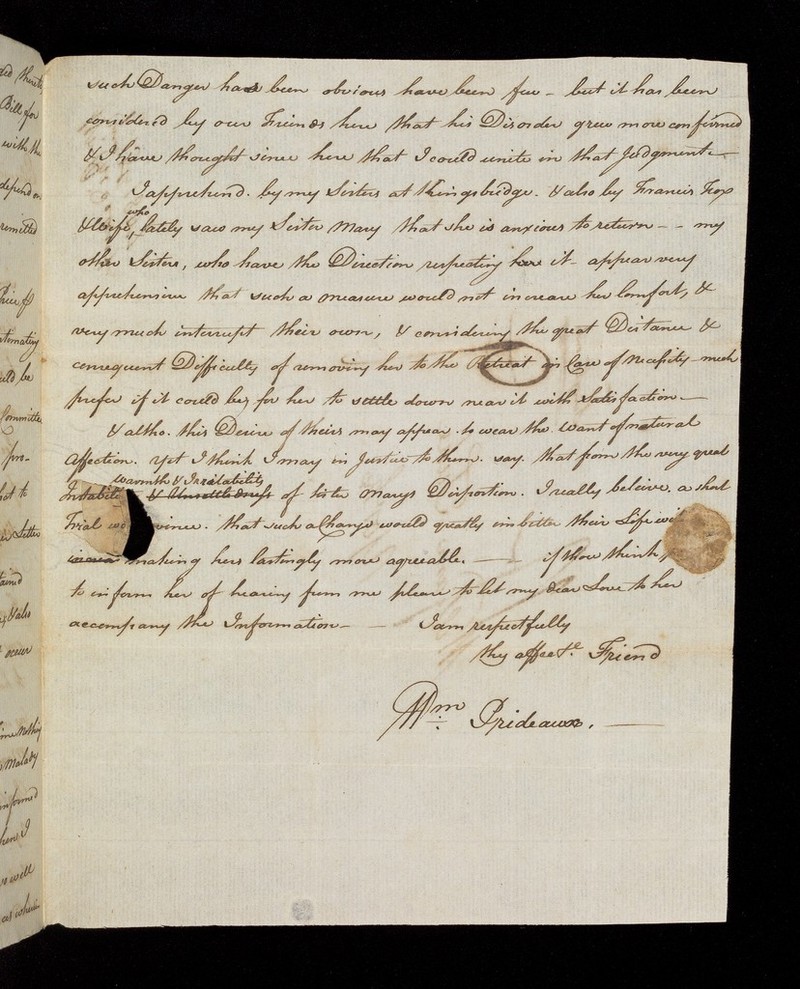 such Danger has been obvious have been few - but it has been
considered by our Friends here that his Disorder grew more confirmed
& I have thought since here that I could unite in that Judgment. -
I apprehend. by my Sisters at Kingsbridge. & also by Francis Fox
& Wife, who lately saw my Sister Mary that she is anxious to return - - my
other Sisters, who have the Direction respecting it - appear very
apprehensive that such a measure would not increase her Comfort, &
very much interrupt their own, & considering the great Distance &
consequent Difficulty of removing her to the Retreat in Case of Necessity - much
prefer if it could be, for her to settle down near it with Satisfaction. -
& altho. this Desire of theirs may appear. to wear the want of natural
Affection. yet I think I may in Justice to them. say. that from the very great
warmth & Irritability
& Unsettledness of Sister Marys Disposition. I really beleive, a short
Trial wo vince. that such a Change would greatly imbitter their Life wi
making hers lastingly more agreeable. - - if thou think,
to inform her of hearing from me please to let my dear Love to her
accompany the Information - - I am respectfully
thy affect.e Friend
Wm Prideaux. -
ded
Bill for
with the
depend on
remitted
uld be
Committee
pro-
hat to
Letter
tained
& also
occur
Malady
informed
I
well